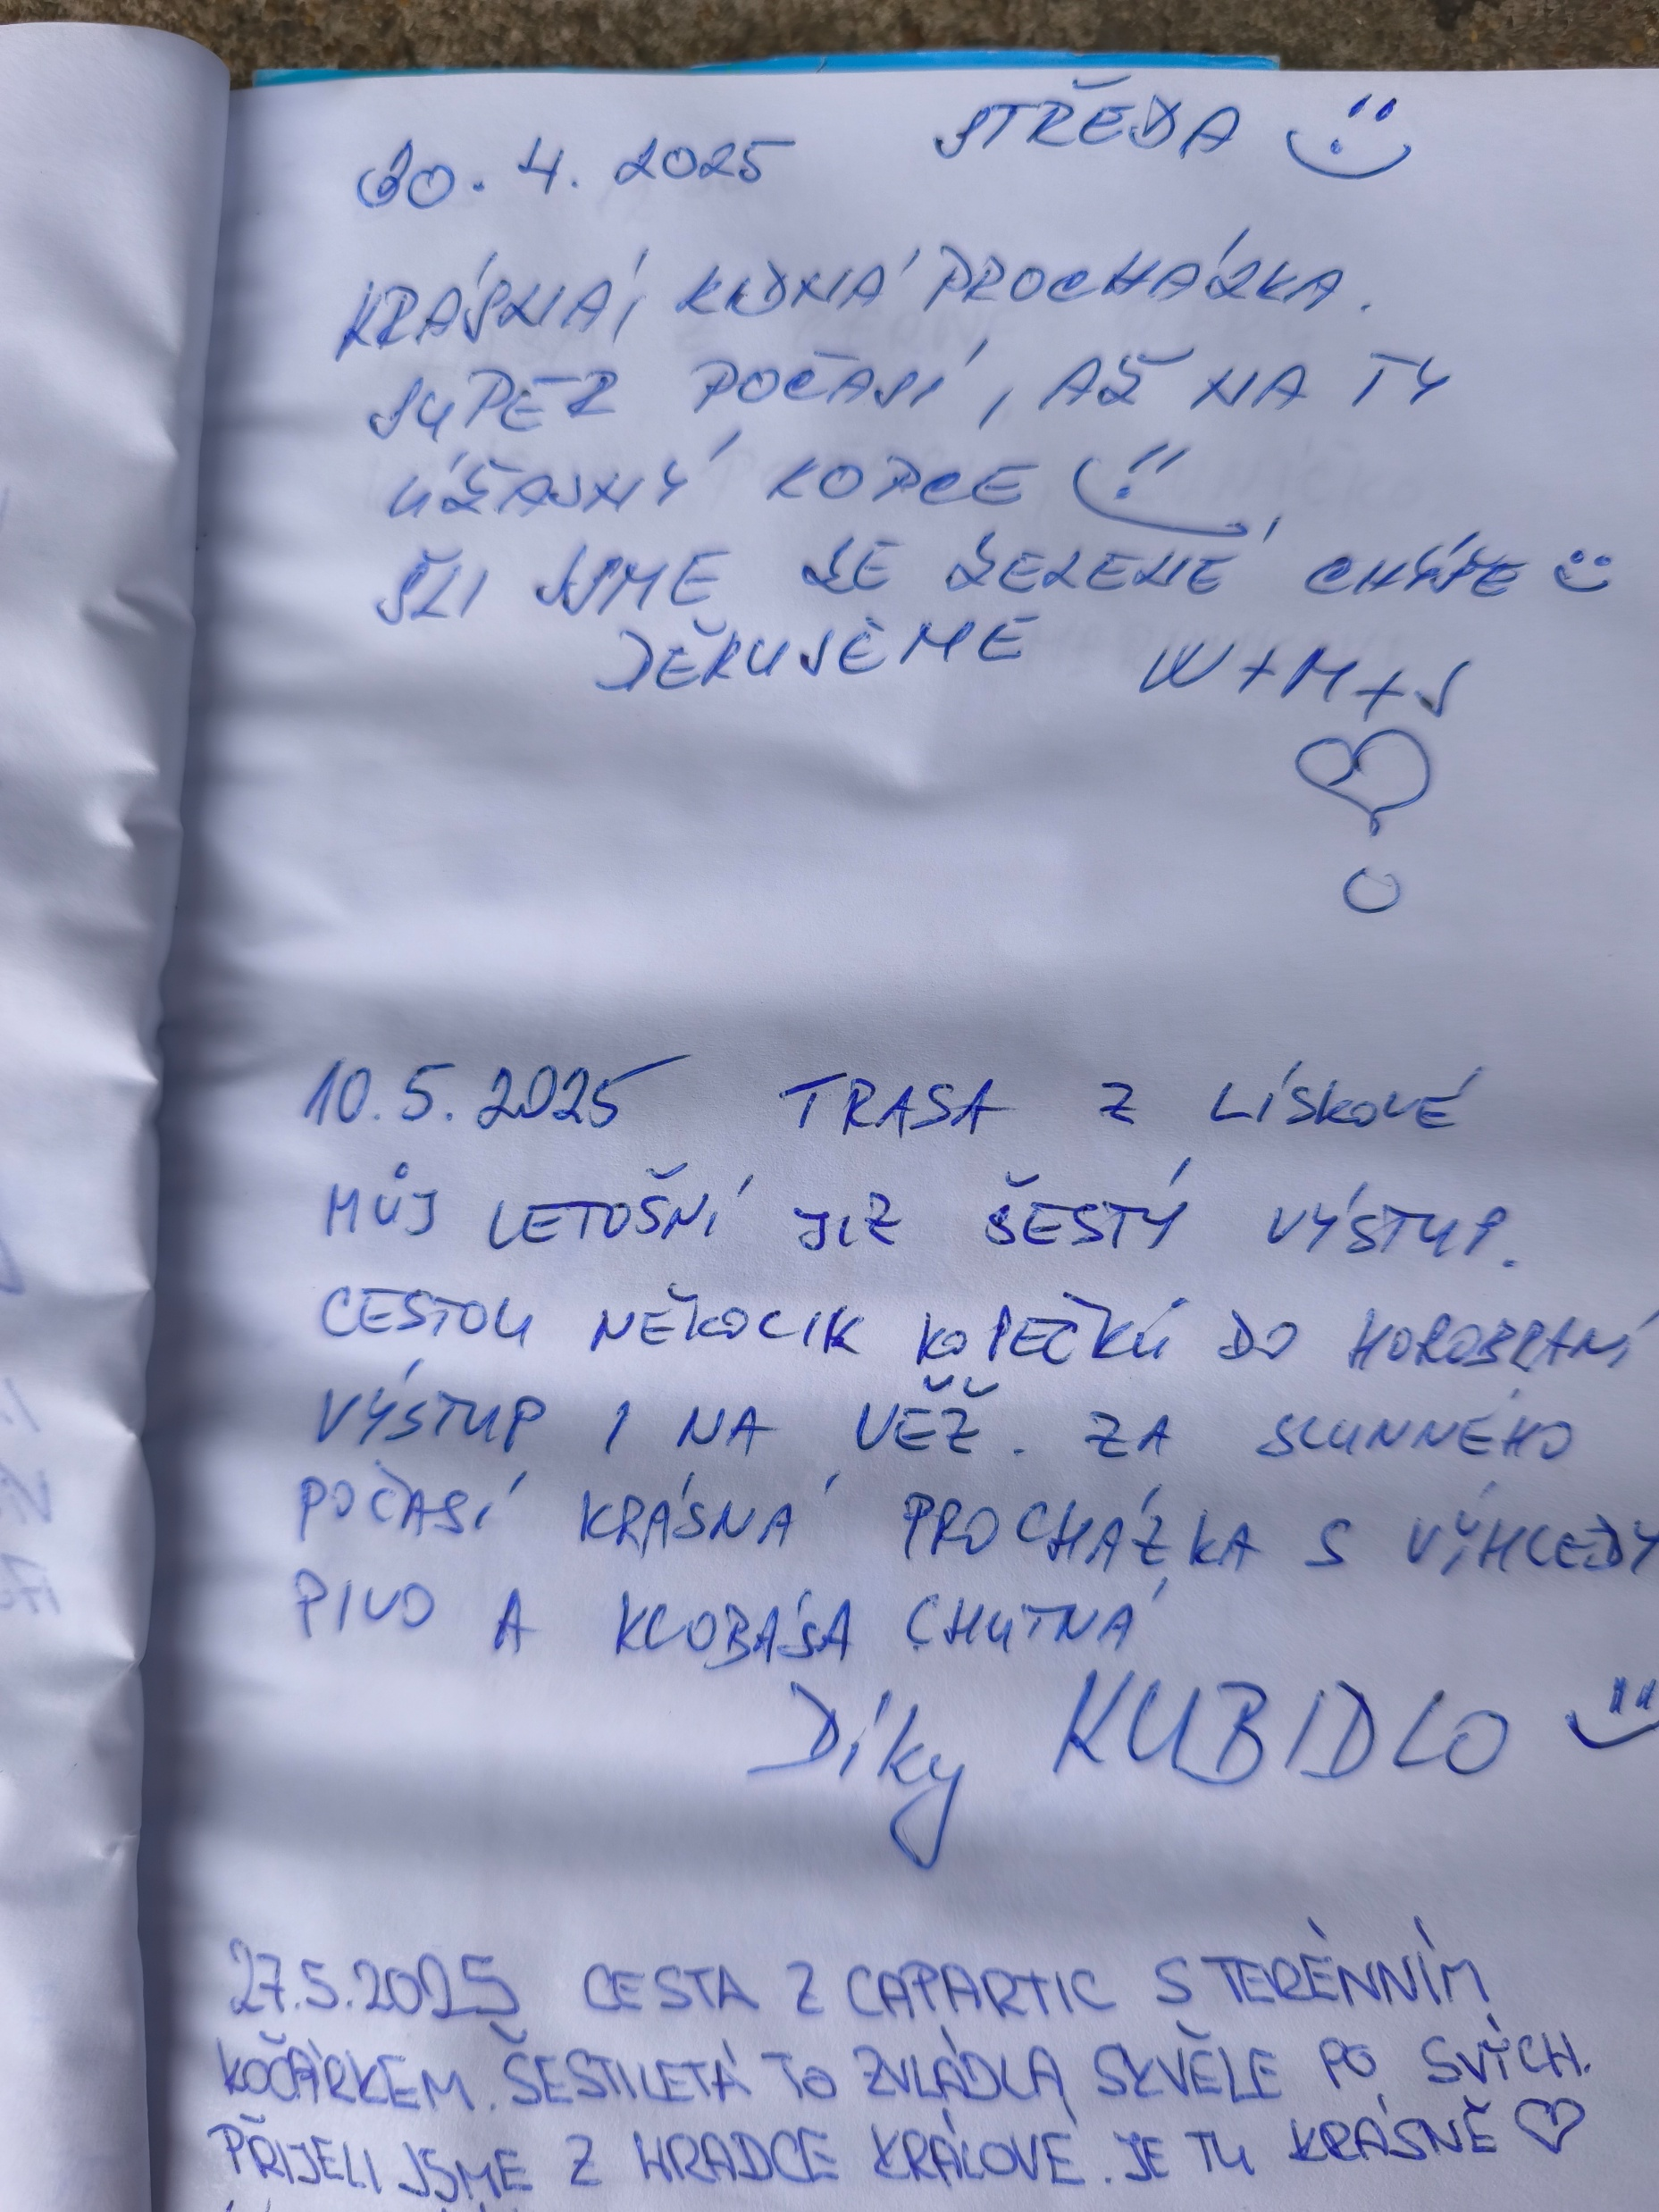 30. 4. 2025 STŘEDA
KRÁSNÁ, KLIDNÁ PROCHÁZKA.
SUPER POČASÍ, AŽ NA TY
ÚŽASNÝ KOPCE
ŠLI JSME ZE ZELENÉ CHÝŠE
DĚKUJEME W+M+J
10.5.2025 TRASA Z LÍSKOVÉ
MŮJ LETOŠNÍ JIŽ ŠESTÝ VÝSTUP.
CESTOU NĚKOLIK KOPEČKŮ DO HOROBRANÍ
VÝSTUP I NA VĚŽ. ZA SLUNNÉHO
POČASÍ KRÁSNÁ PROCHÁZKA S VÝHLEDY
PIVO A KLOBÁSA CHUTNÁ
Díky KUBIDLO
27.5.2025 CESTA Z CAPARTIC S TERÉNNÍM
KOČÁRKEM. ŠESTILETÁ TO ZVLÁDLA SKVĚLE PO SVÝCH.
PŘIJELI JSME Z HRADCE KRÁLOVÉ. JE TU KRÁSNĚ